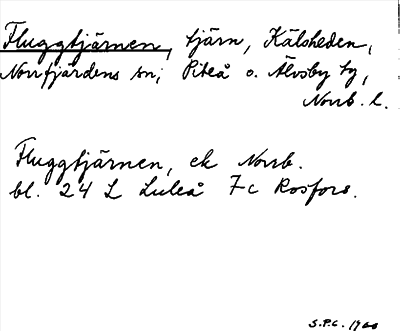 Fluggtjärnen, tjärn, Kälsheden,
Norrfjärdens sn; Piteå o. Älvsby tg,
Norrb. l.
Fluggtjärnen, ek Norrb.
bl. 24 L Luleå 7c Rosfors.
S.P.C. 1960